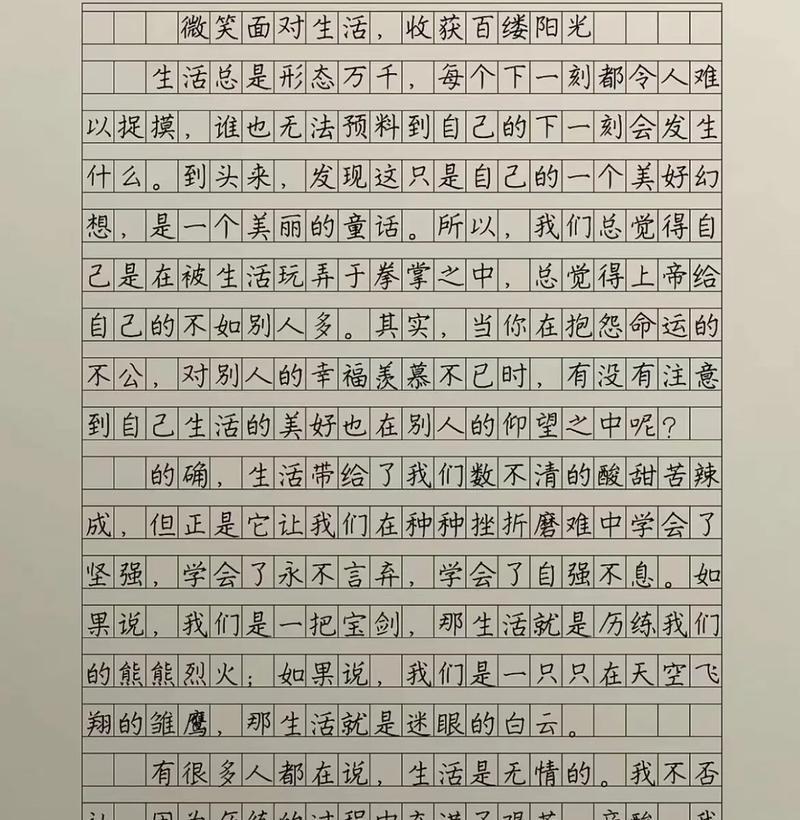 微笑面对生活，收获百缕阳光
生活总是形态万千，每个下一刻都令人难
以捉摸，谁也无法预料到自己的下一刻会发生
什么。到头来，发现这只是自己的一个美好幻
想，是一个美丽的童话。所以，我们总觉得自
己是在被生活玩弄于拳掌之中，总觉得上帝给
自己的不如别人多。其实，当你在抱怨命运的
不公，对别人的幸福羡慕不已时，有没有注意
到自己生活的美好也在别人的仰望之中呢？
的确，生活带给了我们数不清的酸甜苦辣
成，但正是它让我们在种种挫折磨难中学会了
坚强，学会了永不言弃，学会了自强不息。如
果说，我们是一把宝剑，那生活就是历练我们
的熊熊烈火；如果说，我们是一只只在天空飞
翔的雏鹰，那生活就是迷眼的白云。
有很多人都在说，生活是无情的。我不否